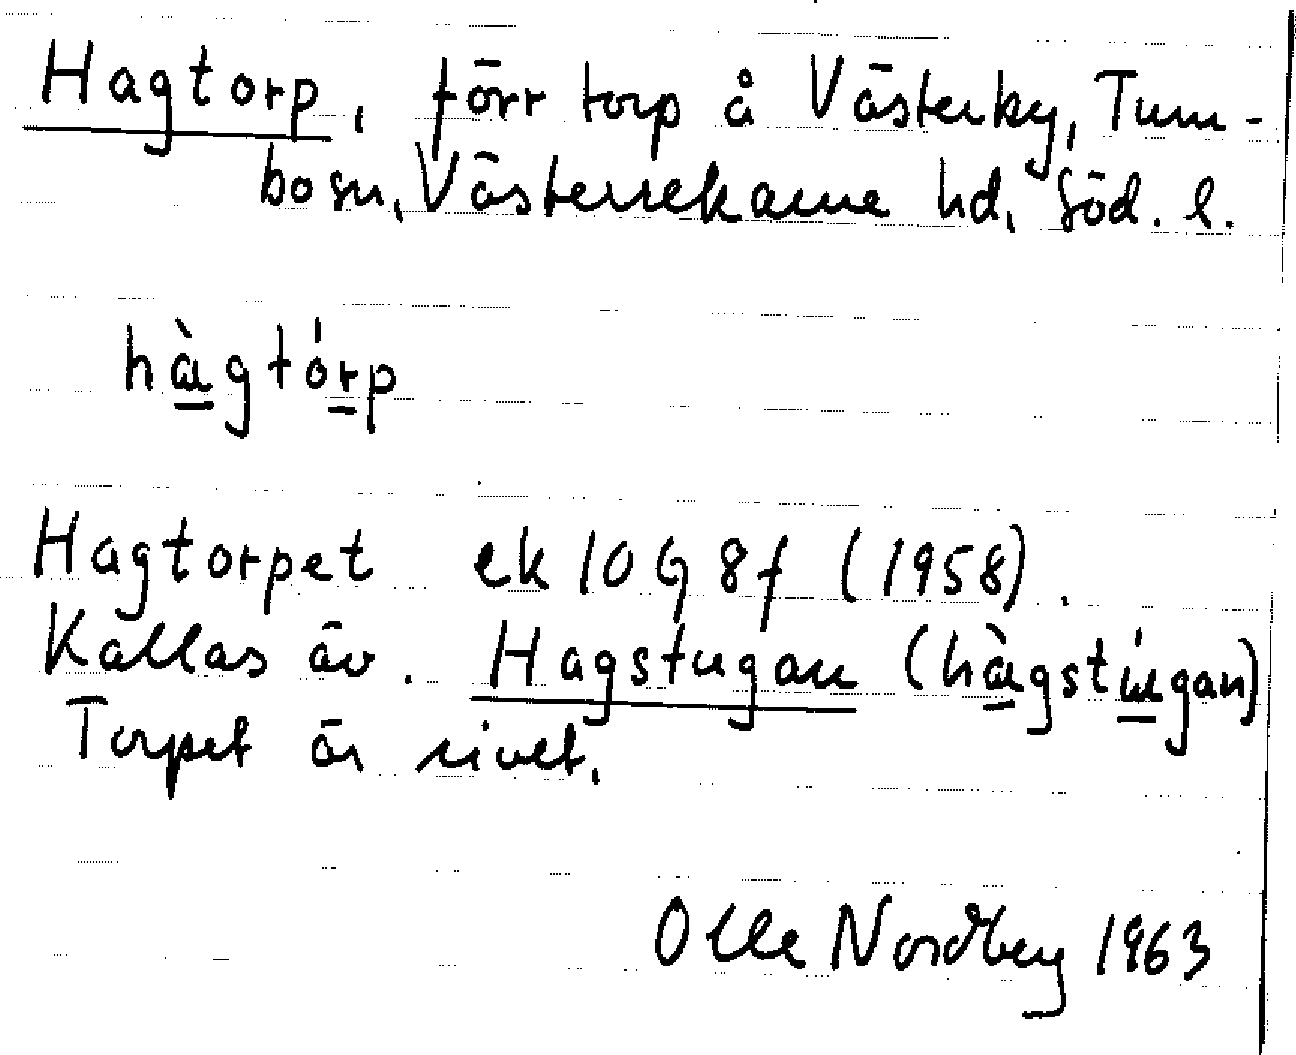 Hagtorp, förr torp å Västerby, Tum-
bo sn, Västerrekarne hd, Söd. l.
hàgtórp
Hagtorpet ek 10G 8f (1958).
Kallas äv. Hagstugan (hàgstúgan)
Torpet är rivet.
Olle Nordberg 1963